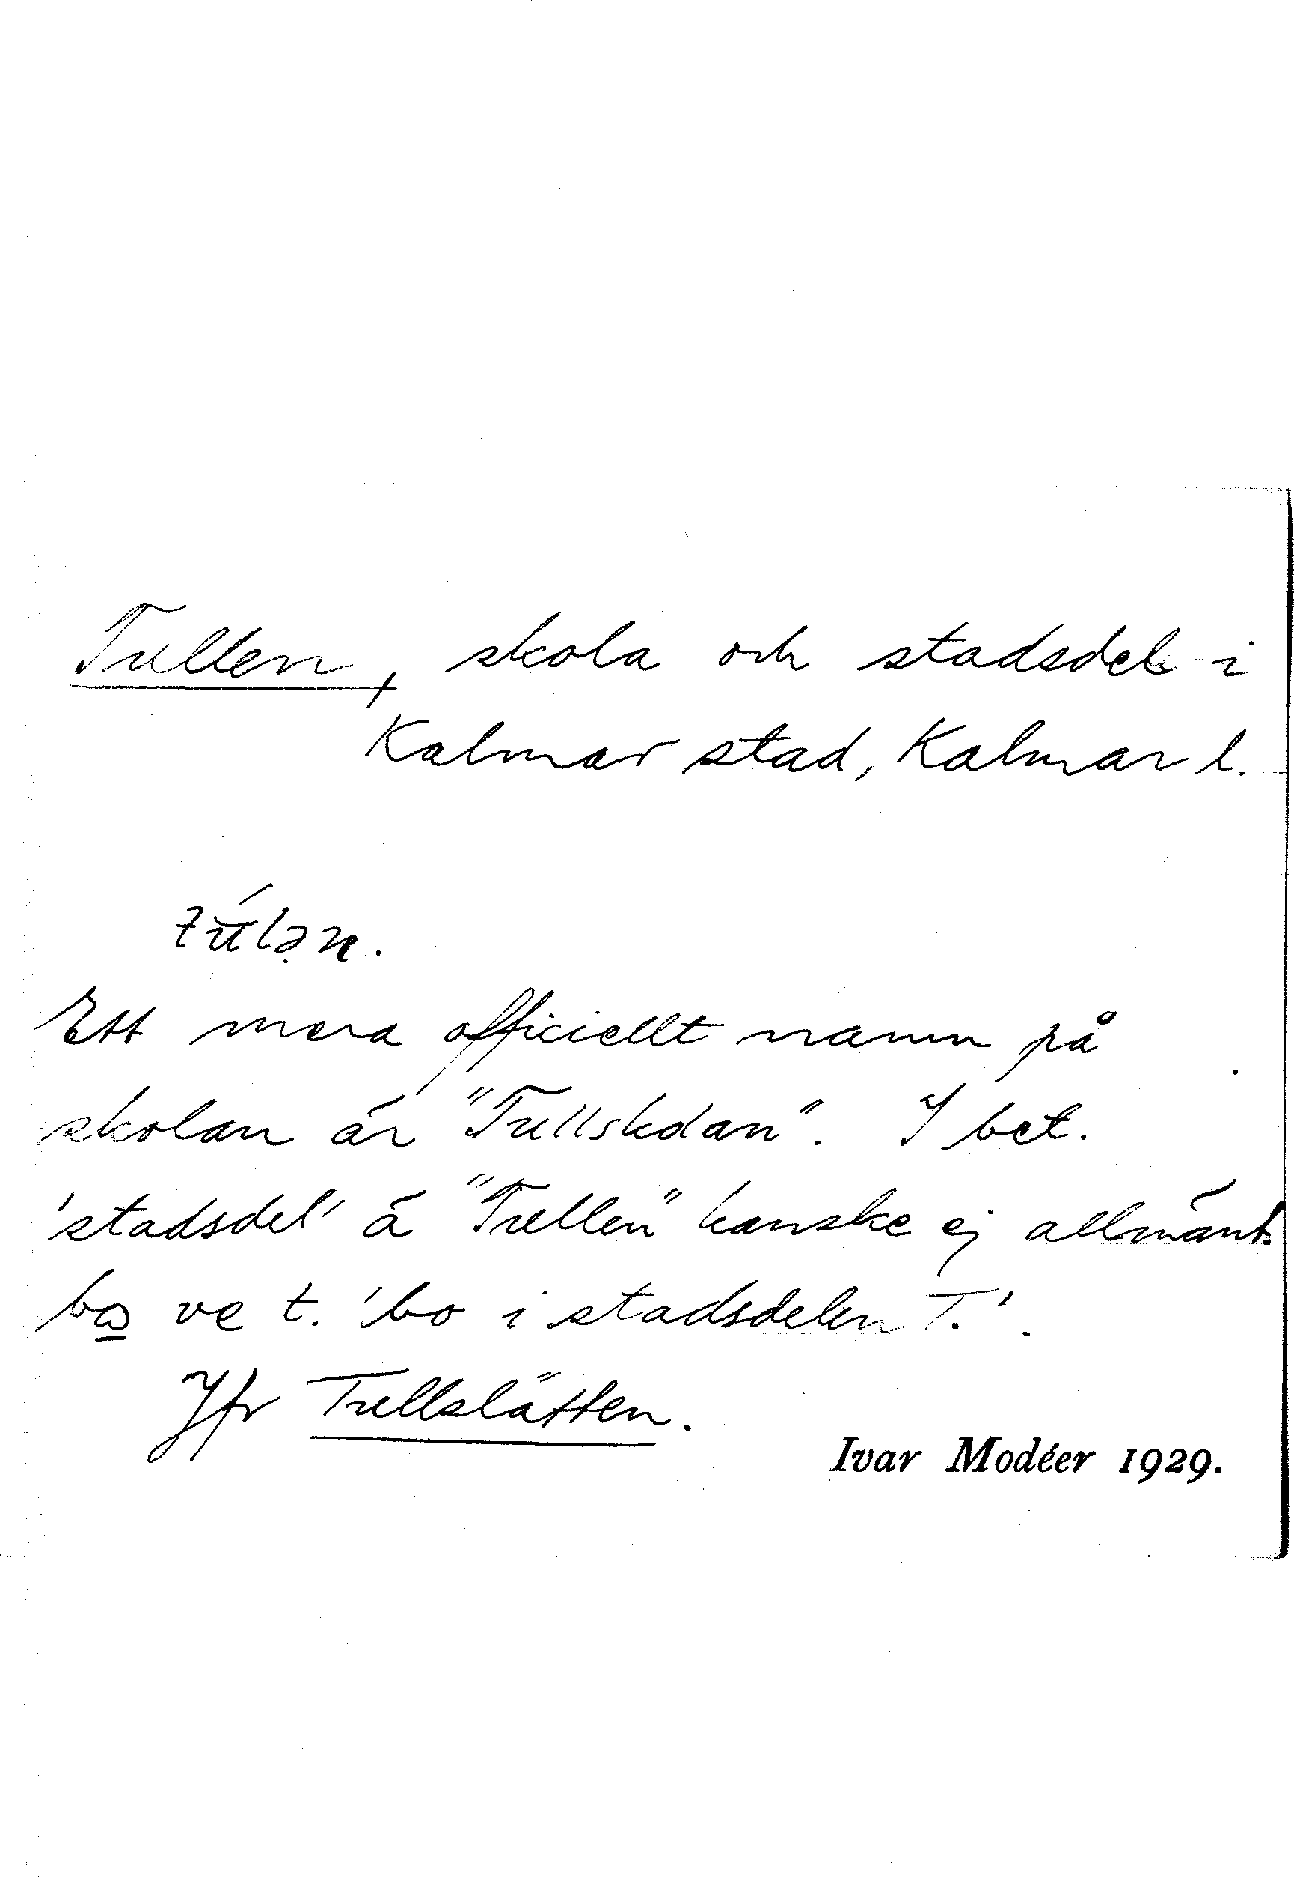 Tullen, skola och stadsdel i
Kalmar stad, Kalmar l.
Ett mera officiellt namn på
skolan är "Tullskolan". I bet.
'stadsdel' ä "Tullen" kanske ej allmänt.
bo ve t. 'bo i stadsdelen T.'.
Jfr Tullslätten.
Ivar Modéer 1929.